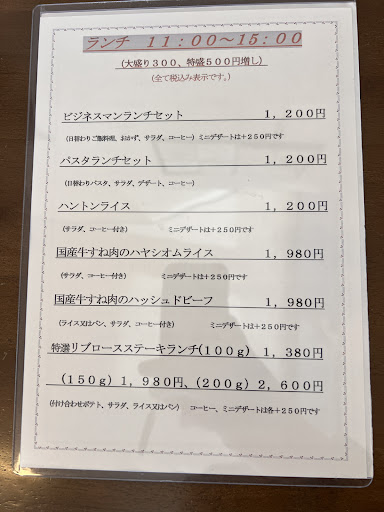 ランチ　１１：００～１５：００
(大盛り３００、特盛５００円増し)
(全て税込み表示です。)
ビジネスマンランチセット　１，２００円
(日替わりご飯料理、おかず、サラダ、コーヒー) ミニデザートは＋２５０円です
パスタランチセット　１，２００円
(日替わりパスタ、サラダ、デザート、コーヒー)
ハントンライス　１，２００円
(サラダ、コーヒー付き)　ミニデザートは＋２５０円です
国産牛すね肉のハヤシオムライス　１，９８０円
(サラダ、コーヒー付き)　ミニデザートは＋２５０円です
国産牛すね肉のハッシュドビーフ　１，９８０円
(ライス又はパン、サラダ、コーヒー付き)　ミニデザートは＋２５０円です
特選リブロースステーキランチ(１００ｇ) １，３８０円
(１５０ｇ) １，９８０円、(２００ｇ) ２，６００円
(付け合わせポテト、サラダ、ライス又はパン)　コーヒー、ミニデザートは各＋２５０円です